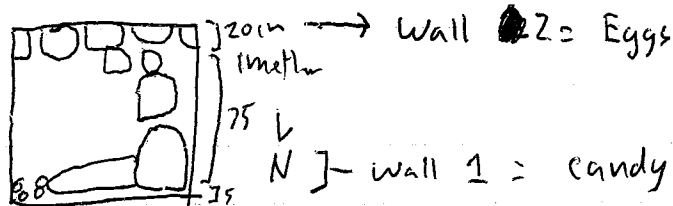 20in → Wall 2 = Eggs
1 meter
75 ↓
N ]- wall 1 = candy